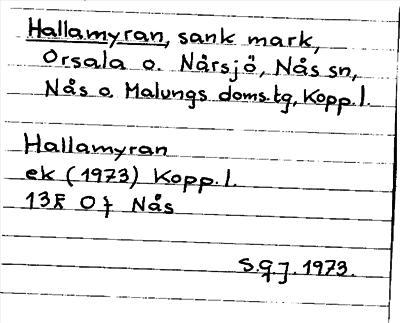 Hallamyran, sank mark,
Orsala o. Nårsjö, Nås sn,
Nås o Malungs doms.tg, Kopp.l.
Hallamyran
ek (1973) Kopp.l.
13F 0 f Nås
S.G.J. 1973.